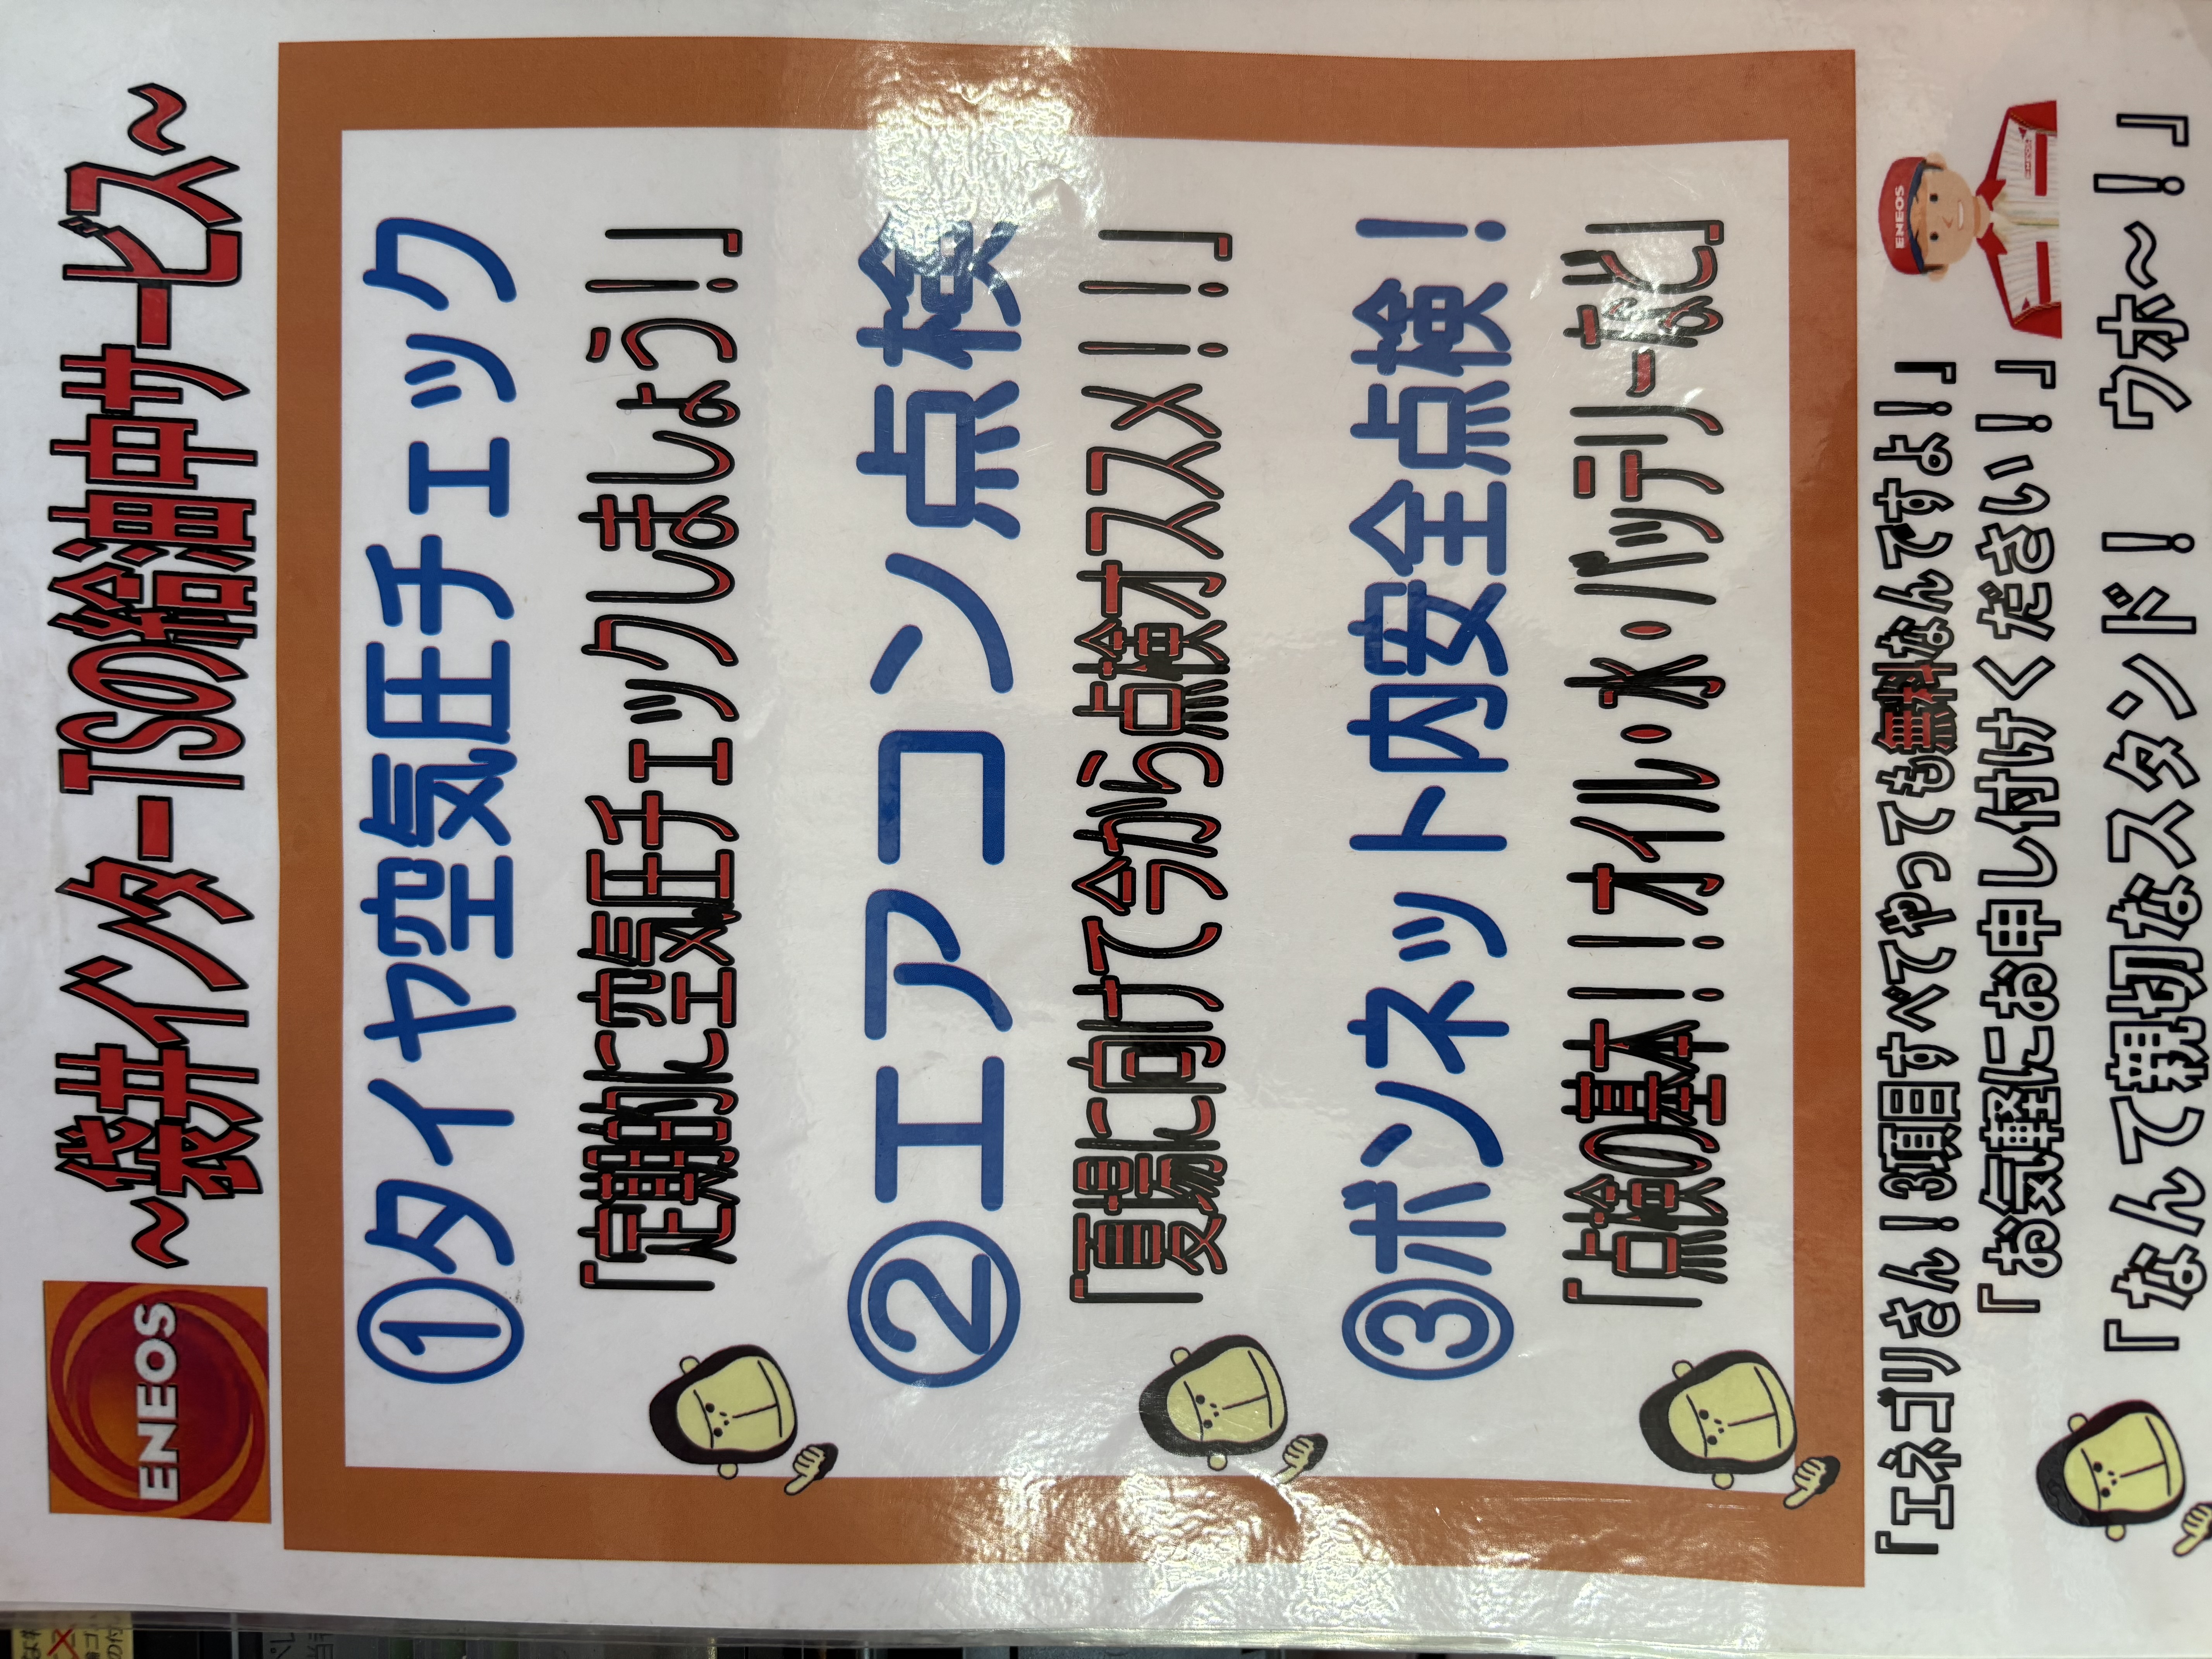 ENEOS
～袋井インターTSの給油中サービス～
①タイヤ空気圧チェック
「定期的に空気圧チェックしましょう！」
②エアコン点検
「夏場に向けて今から点検オススメ！！」
③ボンネット内安全点検！
「点検の基本！！オイル・水・バッテリーなど」
「エネゴリさん！3項目すべてやっても無料なんですよ！」
「お気軽にお申し付けください！」
ENEOS
「なんて親切なスタンド！　ウホ～！」